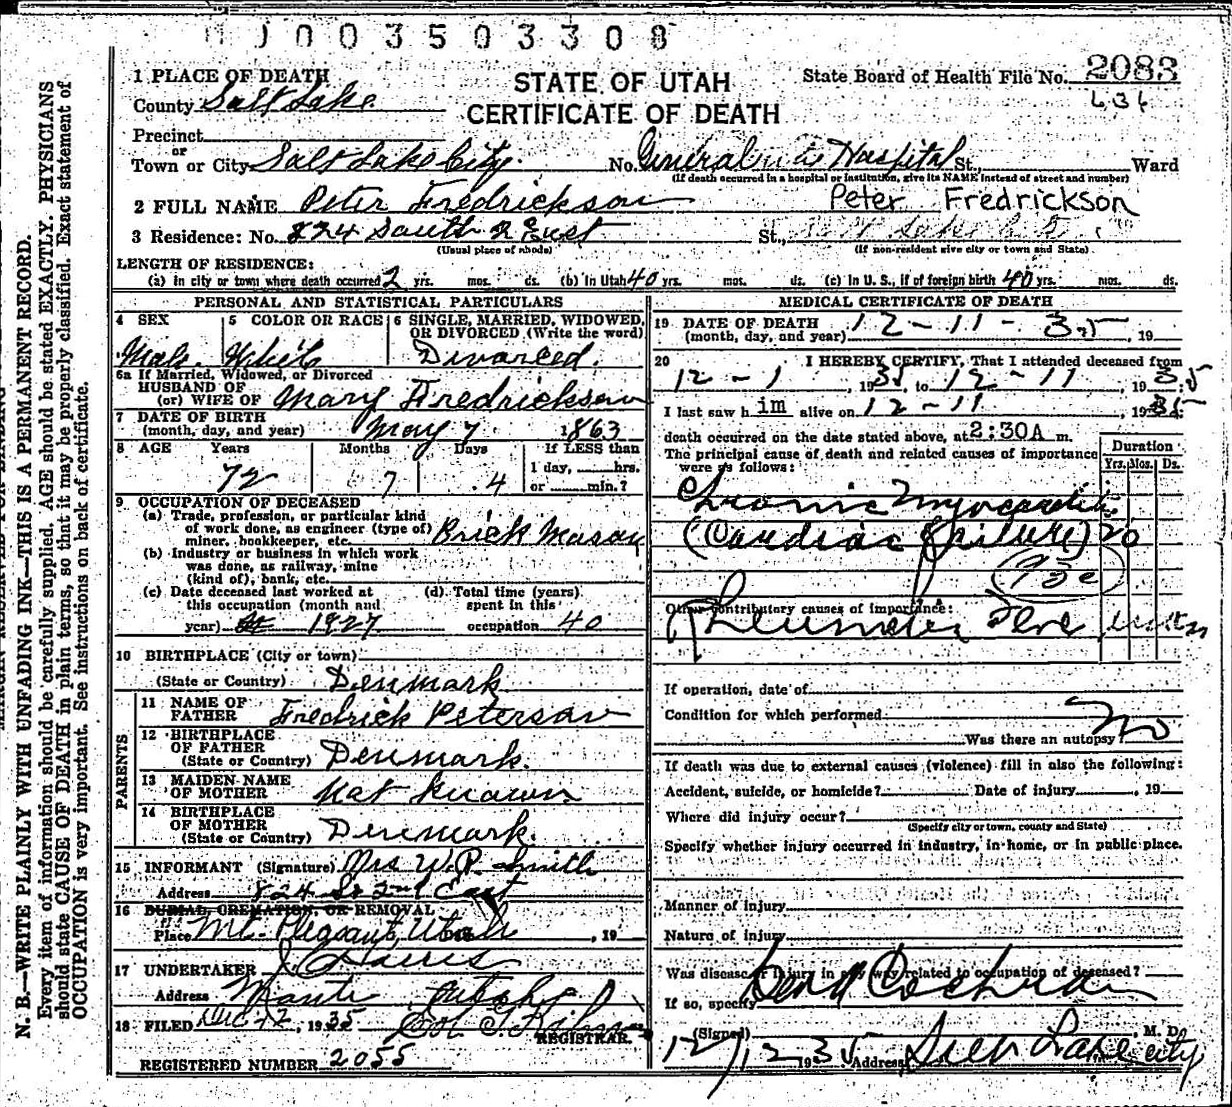 J 0 0 3 5 0 3 3 0 8
STATE OF UTAH
CERTIFICATE OF DEATH
State Board of Health File No. 2083
1 PLACE OF DEATH
County Salt Lake
Precinct
or
Town or City Salt Lake City. No. General Hospital St., Ward
(If death occurred in a hospital or institution, give its NAME instead of street and number)
2 FULL NAME Peter Fredrickson Peter Fredrickson
3 Residence: No. 224 South 2 East St.,
(Usual place of abode) (If non-resident give city or town and State)
LENGTH OF RESIDENCE:
(a) in city or town where death occurred 2 yrs. mos. ds. (b) In Utah 40 yrs. mos. ds. (c) In U. S., if of foreign birth 40 yrs. mos. ds.
PERSONAL AND STATISTICAL PARTICULARS
4 SEX Male
5 COLOR OR RACE White
6 SINGLE, MARRIED, WIDOWED, OR DIVORCED (Write the word)
Divorced.
6a If Married, Widowed, or Divorced
HUSBAND OF
(or) WIFE OF Mary Fredrickson
7 DATE OF BIRTH
(month, day, and year) May 7 1863
8 AGE Years Months Days If LESS than
1 day, hrs.
72 7 4 or min.?
9 OCCUPATION OF DECEASED
(a) Trade, profession, or particular kind
of work done, as engineer (type of)
miner, bookkeeper, etc. Brick Mason
(b) Industry or business in which work
was done, as railway, mine
(kind of), bank, etc.
(c) Date deceased last worked at
this occupation (month and
year) 1927
(d) Total time (years)
spent in this
occupation 40
10 BIRTHPLACE (City or town)
(State or Country) Denmark
PARENTS
11 NAME OF
FATHER Fredrick Peterson
12 BIRTHPLACE
OF FATHER
(State or Country) Denmark.
13 MAIDEN NAME
OF MOTHER Not Known
14 BIRTHPLACE
OF MOTHER
(State or Country) Denmark.
15 INFORMANT (Signature) Mrs W.P. Smith
Address 824 So 2nd East
16 BURIAL, CREMATION, OR REMOVAL
Place Mt. Pleasant, Utah , 19
17 UNDERTAKER Harris
Address Manti Utah
18 FILED Dec 12, 1935
REGISTRAR.
REGISTERED NUMBER 2055
MEDICAL CERTIFICATE OF DEATH
19 DATE OF DEATH
(month, day, and year) 12-11-35, 19
20 I HEREBY CERTIFY, That I attended deceased from
12-1, 1935, to 12-11, 1935
I last saw h im alive on 12-11, 1935
death occurred on the date stated above, at 2:30A m.
The principal cause of death and related causes of importance
were as follows:
Duration
Yrs. Mos. Ds.
Chronic Myocarditis
(Cardiac failure) 20
Other contributory causes of importance:
Rheumatic
If operation, date of
Condition for which performed
Was there an autopsy? No
If death was due to external causes (violence) fill in also the following:
Accident, suicide, or homicide? Date of injury , 19
Where did injury occur?
(Specify city or town, county and State)
Specify whether injury occurred in industry, in home, or in public place.
Manner of injury
Nature of injury
Was disease or injury in any way related to occupation of deceased?
If so, specify
(Signed) Cochran, M. D.
12/12 1935 Address Salt Lake City
N. B.—WRITE PLAINLY WITH UNFADING INK—THIS IS A PERMANENT RECORD.
Every item of information should be carefully supplied. AGE should be stated EXACTLY. PHYSICIANS
should state CAUSE OF DEATH in plain terms, so that it may be properly classified. Exact statement of
OCCUPATION is very important. See instructions on back of certificate.